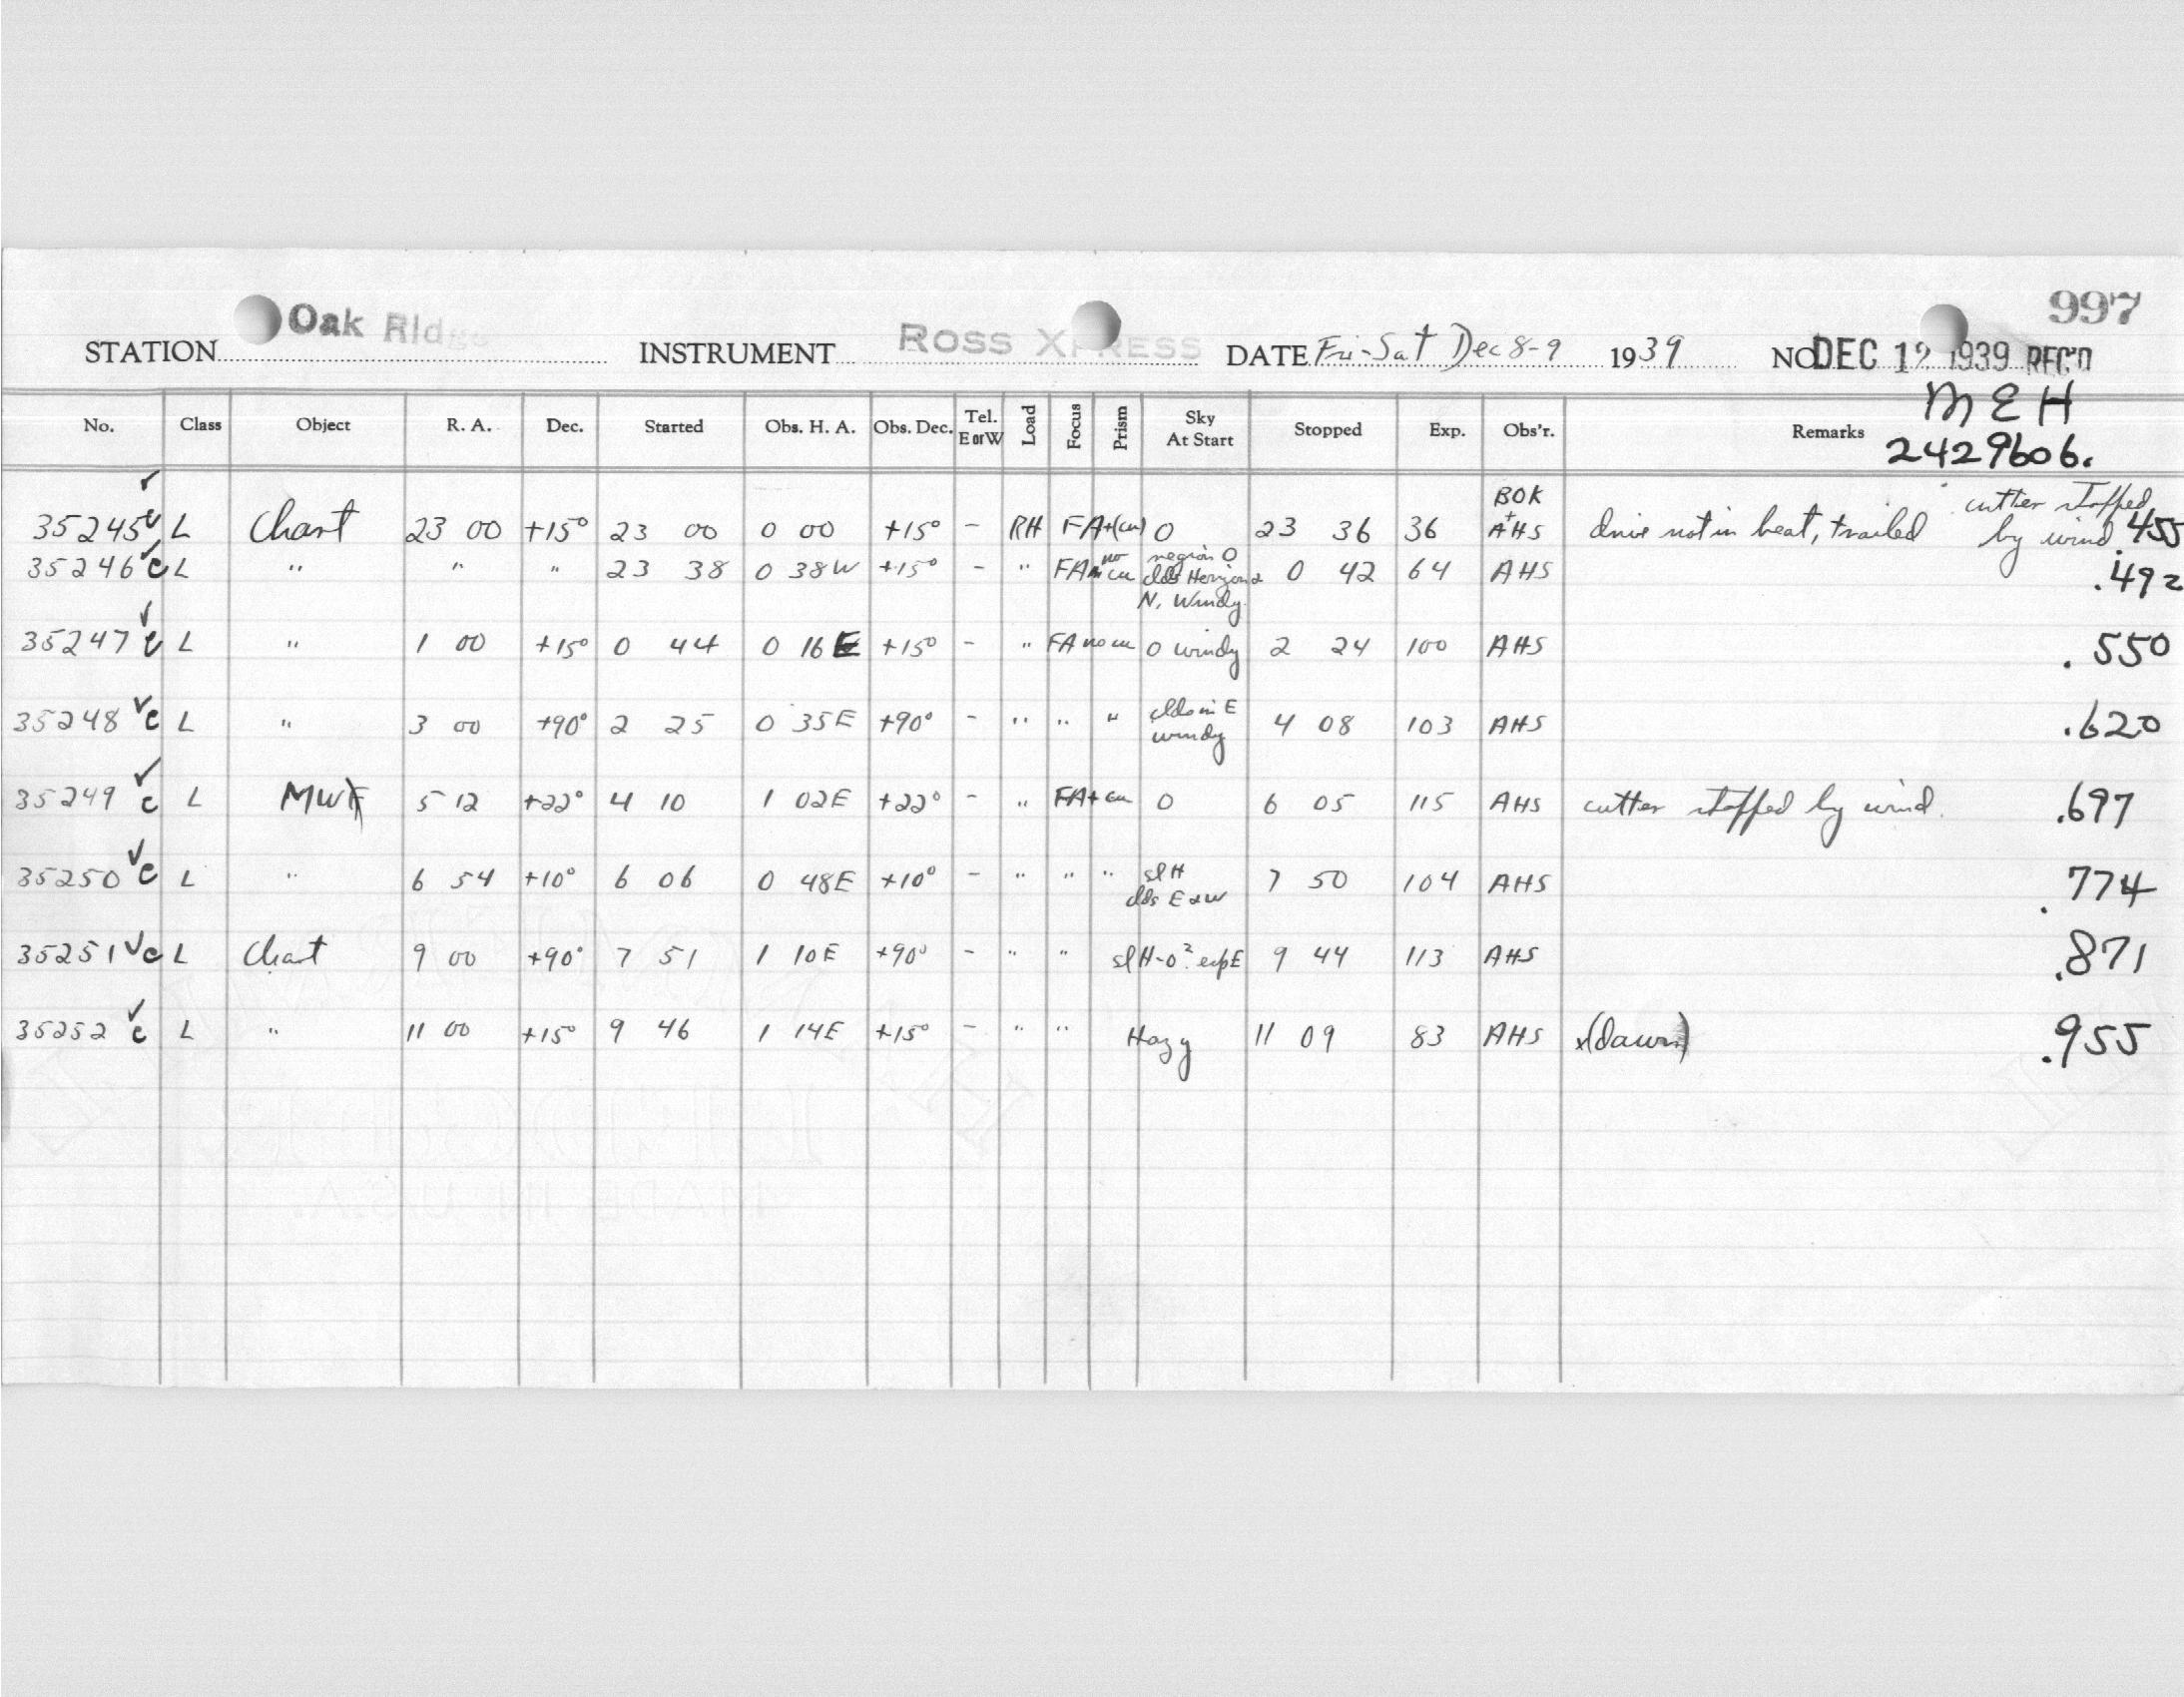 997
STATION Oak Ridge INSTRUMENT ROSS XPRESS DATE Fri-Sat Dec 8-9 1939 NO DEC 12 1939 REC'D
MEH
No. Class Object R. A. Dec. Started Obs. H. A. Obs. Dec. Tel. E or W Load Focus Prism Sky At Start Stopped Exp. Obs'r. Remarks
2429606.
35245 c L Chart 23 00 +15° 23 00 0 00 +15° - RH FA+(cu) 0 23 36 36 BOK + AHS drive not in beat, trailed cutter stopped by wind .455
35246 c L " " " 23 38 0 38W +15° - " FA no cu region 0 clds Horizon N, Windy. 0 42 64 AHS .492
35247 c L " 1 00 +15° 0 44 0 16 E +15° - " FA no cu 0 windy 2 24 100 AHS .550
35248 c L " 3 00 +90° 2 25 0 35E +90° - " " " clds in E windy 4 08 103 AHS .620
35249 c L MWF 5 12 +22° 4 10 1 02E +22° - " FA+cu 0 6 05 115 AHS cutter stopped by wind. .697
35250 c L " 6 54 +10° 6 06 0 48E +10° - " " " sl H clds E & W 7 50 104 AHS .774
35251 c L Chart 9 00 +90° 7 51 1 10E +90° - " " sl H-0? E 9 44 113 AHS .871
35252 c L " 11 00 +15° 9 46 1 14E +15° - " " Hazy 11 09 83 AHS x(dawn) .955
MADE IN U.S.A.